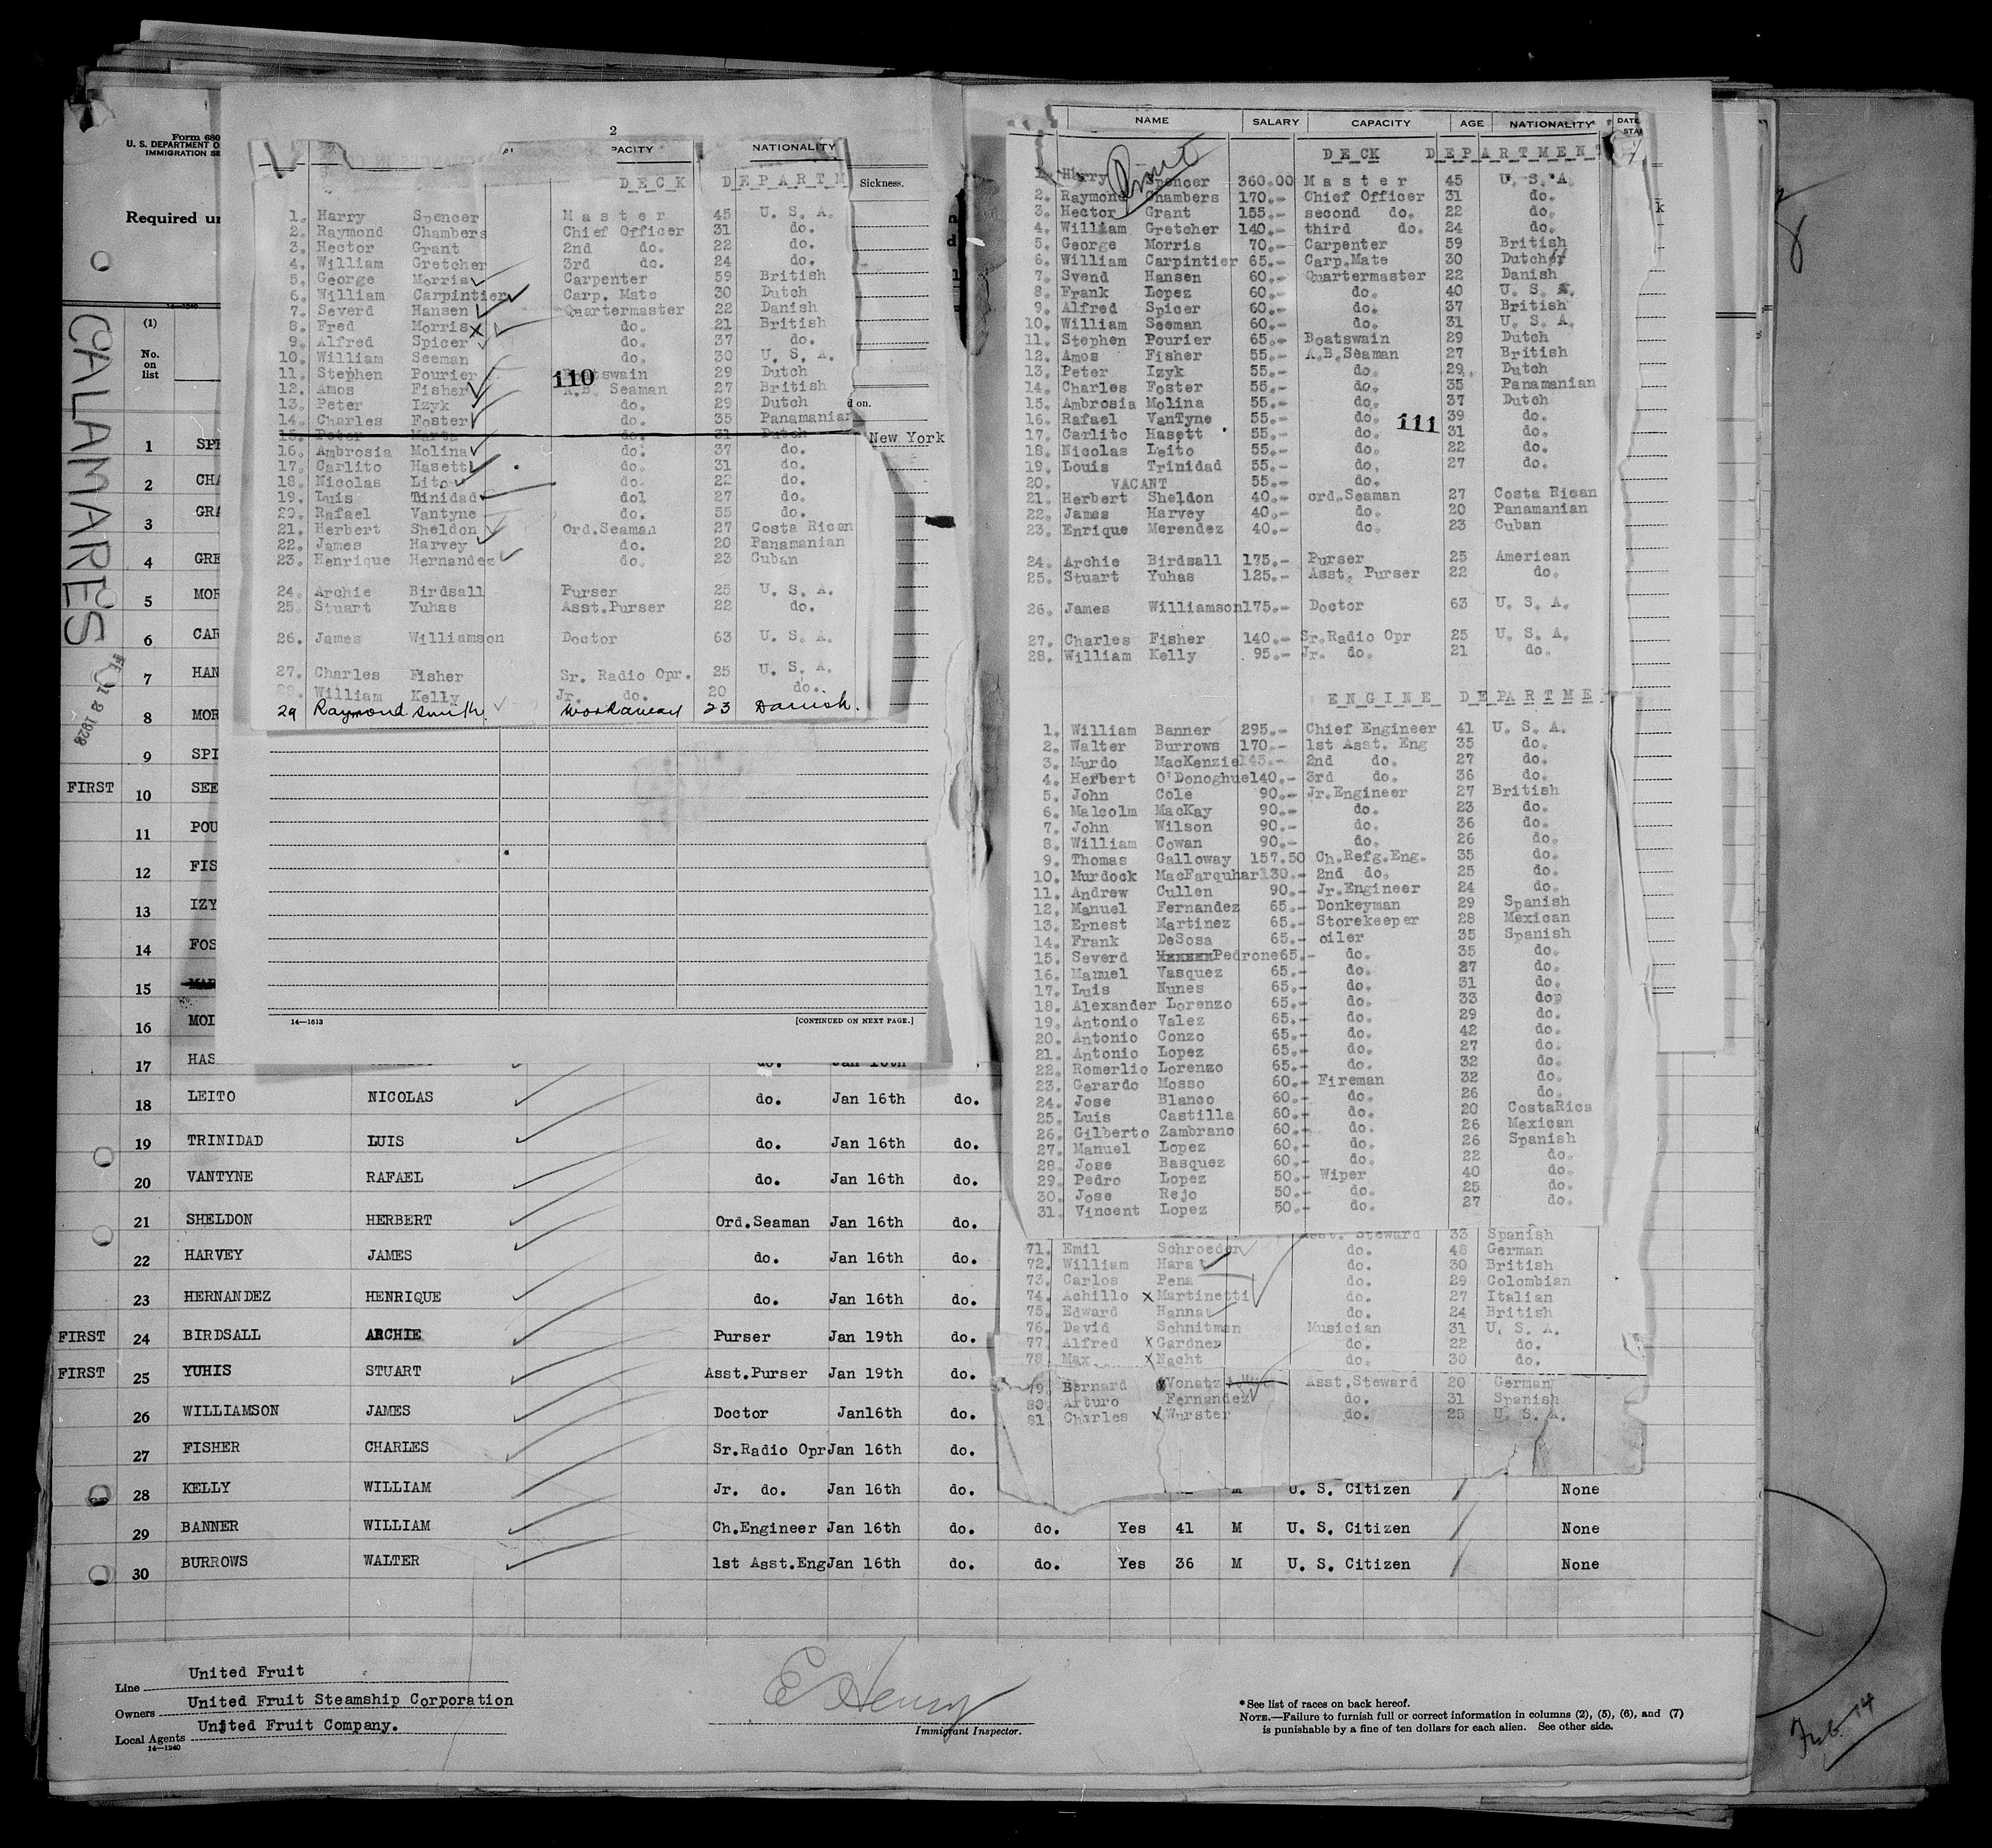 Form 680
U. S. DEPARTMENT O
IMMIGRATION SE
Required un
14—1240
CALAMARES
(1)
No.
on
list
1 SPE
2 CHA
3 GRA
4 GRE
5 MOR
6 CAR
7 HAN
8 MOR
9 SPI
FIRST 10 SEE
11 POU
12 FIS
13 IZY
14 FOS
15 MAR
16 MOL
17 HAS do. Jan 16th
18 LEITO NICOLAS do. Jan 16th do.
19 TRINIDAD LUIS do. Jan 16th do.
20 VANTYNE RAFAEL do. Jan 16th do.
21 SHELDON HERBERT Ord.Seaman Jan 16th do.
22 HARVEY JAMES do. Jan 16th do.
23 HERNANDEZ HENRIQUE do. Jan 16th do.
FIRST 24 BIRDSALL ARCHIE Purser Jan 19th do.
FIRST 25 YUHIS STUART Asst.Purser Jan 19th do.
26 WILLIAMSON JAMES Doctor Jan16th do.
27 FISHER CHARLES Sr.Radio Opr Jan 16th do.
28 KELLY WILLIAM Jr. do. Jan 16th do. M U. S. Citizen None
29 BANNER WILLIAM Ch.Engineer Jan 16th do. do. Yes 41 M U. S. Citizen None
30 BURROWS WALTER 1st Asst.Eng Jan 16th do. do. Yes 36 M U. S. Citizen None
Line United Fruit
Owners United Fruit Steamship Corporation
Local Agents United Fruit Company.
14—1240
E Henry
Immigrant Inspector.
*See list of races on back hereof.
NOTE.—Failure to furnish full or correct information in columns (2), (5), (6), and (7)
is punishable by a fine of ten dollars for each alien. See other side.
Feb. 14
2
PACITY NATIONALITY
DECK DEPARTM
Sickness.
1. Harry Spencer Master 45 U. S. A.
2. Raymond Chambers Chief Officer 31 do.
3. Hector Grant 2nd do. 22 do.
4. William Gretcher 3rd do. 24 do.
5. George Morris Carpenter 59 British
6. William Carpintier Carp. Mate 30 Dutch
7. Severd Hansen Quartermaster 22 Danish
8. Fred Morris do. 21 British
9. Alfred Spicer do. 37 do.
10. William Seeman do. 30 U. S. A.
11. Stephen Pourier swain 29 Dutch
110
12. Amos Fisher A.B. Seaman 27 British
13. Peter Izyk do. 29 Dutch
14. Charles Foster do. 35 Panamanian
15. Peter Marta do. 31 Dutch
d on.
New York
16. Ambrosia Molina do. 37 do.
17. Carlito Hasett do. 31 do.
18. Nicolas Lito do. 22 do.
19. Luis Trinidad dol 27 do.
20. Rafael Vantyne do. 55 do.
21. Herbert Sheldon Ord.Seaman 27 Costa Rican
22. James Harvey do. 20 Panamanian
23. Henrique Hernandez do. 23 Cuban
24. Archie Birdsall Purser 25 U. S. A.
25. Stuart Yuhas Asst.Purser 22 do.
26. James Williamson Doctor 63 U. S. A.
27. Charles Fisher Sr. Radio Opr. 25 U. S. A.
28. William Kelly Jr. do. 20 do.
29 Raymond Smith workaway 23 Danish.
14—1613 [CONTINUED ON NEXT PAGE.]
NAME SALARY CAPACITY AGE NATIONALITY DATE
STA
DECK DEPARTMENT
1. Harry Spencer 360.00 Master 45 U. S. A.
2. Raymond Chambers 170.- Chief Officer 31 do.
3. Hector Grant 155.- second do. 22 do.
4. William Gretcher 140.- third do. 24 do.
5. George Morris 70.- Carpenter 59 British
6. William Carpintier 65.- Carp.Mate 30 Dutch
7. Svend Hansen 60.- Quartermaster 22 Danish
8. Frank Lopez 60.- do. 40 U. S. A.
9. Alfred Spicer 60.- do. 37 British
10. William Seeman 60.- do. 31 U. S. A.
11. Stephen Pourier 65.- Boatswain 29 Dutch
12. Amos Fisher 55.- A.B.Seaman 27 British
13. Peter Izyk 55.- do. 29. Dutch
14. Charles Foster 55.- do. 35 Panamanian
15. Ambrosia Molina 55.- do. 37 Dutch
16. Rafael VanTyne 55.- do. 39 do.
111
17. Carlito Hasett 55.- do. 31 do.
18. Nicolas Leito 55.- do. 22 do.
19. Louis Trinidad 55.- do. 27 do.
20. VACANT 55.- do.
21. Herbert Sheldon 40.- ord.Seaman 27 Costa Rican
22. James Harvey 40.- do. 20 Panamanian
23. Enrique Merendez 40.- do. 23 Cuban
24. Archie Birdsall 175.- Purser 25 American
25. Stuart Yuhas 125.- Asst. Purser 22 do.
26. James Williamson 175.- Doctor 63 U. S. A.
27. Charles Fisher 140.- Sr.Radio Opr 25 U. S. A.
28. William Kelly 95.- Jr. do. 21 do.
ENGINE DEPARTME
1. William Banner 295.- Chief Engineer 41 U. S. A.
2. Walter Burrows 170.- 1st Asst. Eng 35 do.
3. Murdo MacKenzie 145.- 2nd do. 27 do.
4. Herbert O'Donoghue 140.- 3rd do. 36 do.
5. John Cole 90.- Jr.Engineer 27 British
6. Malcolm MacKay 90.- do. 23 do.
7. John Wilson 90.- do. 36 do.
8. William Cowan 90.- do. 26 do.
9. Thomas Galloway 157.50 Ch.Refg.Eng. 35 do.
10. Murdock MacFarquhar 130.- 2nd do. 25 do.
11. Andrew Cullen 90.- Jr.Engineer 24 do.
12. Manuel Fernandez 65.- Donkeyman 29 Spanish
13. Ernest Martinez 65.- Storekeeper 28 Mexican
14. Frank DeSosa 65.- oiler 35 Spanish
15. Severd Pedrone 65.- do. 35 do.
16. Manuel Vasquez 65.- do. 27 do.
17. Luis Nunes 65.- do. 31 do.
18. Alexander Lorenzo 65.- do. 33 do.
19. Antonio Valez 65.- do. 29 do.
20. Antonio Conzo 65.- do. 42 do.
21. Antonio Lopez 65.- do. 27 do.
22. Romerlio Lorenzo 65.- do. 32 do.
23. Gerardo Mosso 60.- Fireman 32 do.
24. Jose Blanco 60.- do. 26 do.
25. Luis Castilla 60.- do. 20 CostaRica
26. Gilberto Zambrano 60.- do. 26 Mexican
27. Manuel Lopez 60.- do. 26 Spanish
28. Jose Basquez 60.- do. 22 do.
29. Pedro Lopez 50.- Wiper 40 do.
30. Jose Rejo 50.- do. 25 do.
31. Vincent Lopez 50.- do. 27 do.
Asst. Steward 33 Spanish
71. Emil Schroeder do. 48 German
72. William Hara do. 30 British
73. Carlos Pena do. 29 Colombian
74. Achillo Martinetti do. 27 Italian
75. Edward Hanna do. 24 British
76. David Schnitman Musician 31 U. S. A.
77. Alfred Gardner do. 22 do.
78. Max Nacht do. 30 do.
79. Bernard Vonatz Asst.Steward 20 German
80. Arturo Fernandez do. 31 Spanish
81 Charles Wurster do. 25 U. S. A.